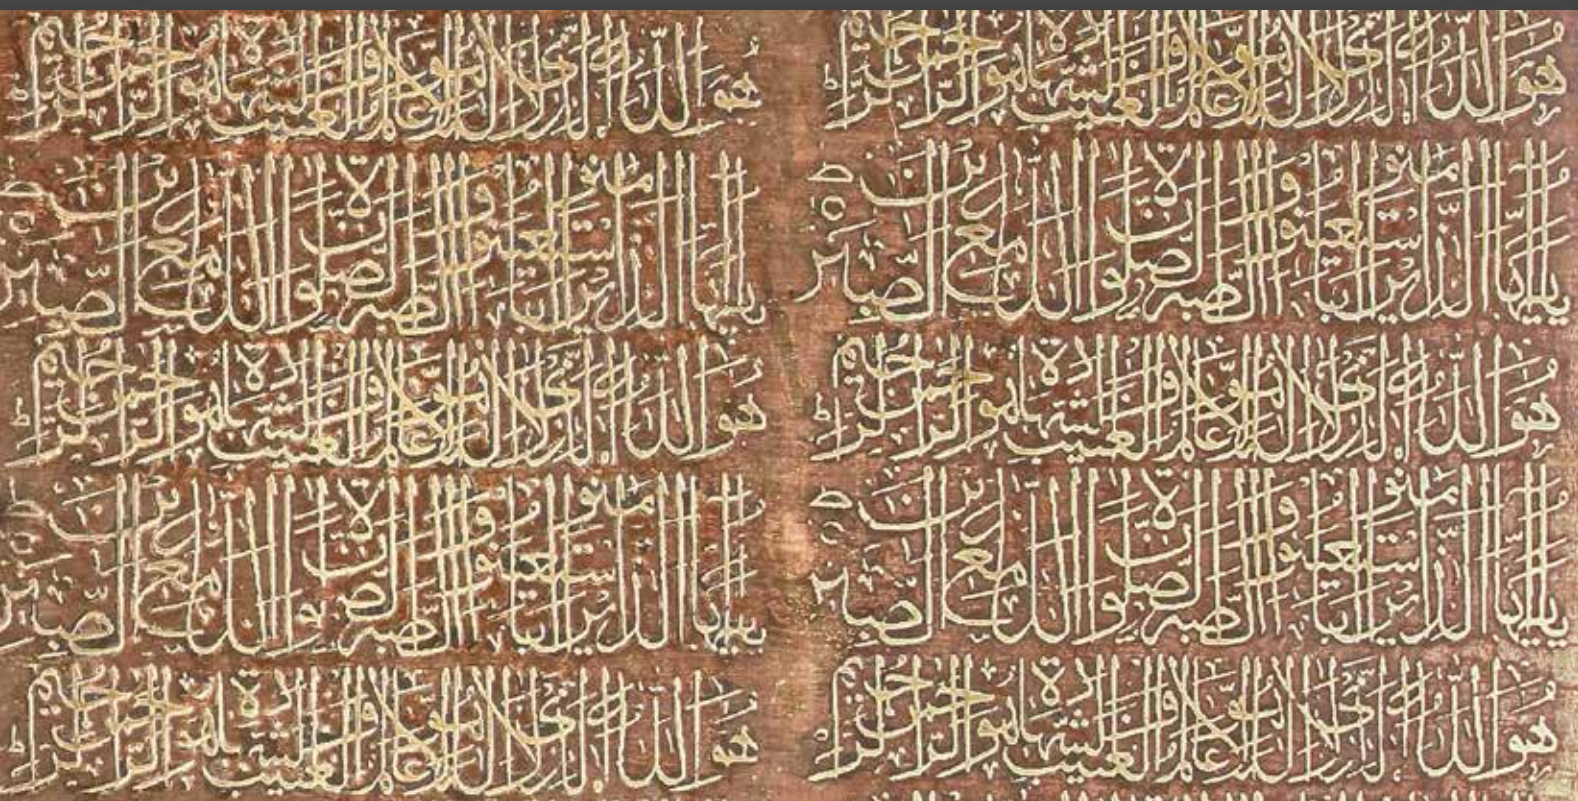 هو الله الذى لا اله الا هو علم الغيب والشهادة هو الرحمن الرحيم
يايها الذين امنوا استعينوا بالصبر والصلوة ان الله مع الصبرين
هو الله الذى لا اله الا هو علم الغيب والشهادة هو الرحمن الرحيم
يايها الذين امنوا استعينوا بالصبر والصلوة ان الله مع الصبرين
هو الله الذى لا اله الا هو علم الغيب والشهادة هو الرحمن الرحيم
هو الله الذى لا اله الا هو علم الغيب والشهادة هو الرحمن الرحيم
يايها الذين امنوا استعينوا بالصبر والصلوة ان الله مع الصبرين
هو الله الذى لا اله الا هو علم الغيب والشهادة هو الرحمن الرحيم
يايها الذين امنوا استعينوا بالصبر والصلوة ان الله مع الصبرين
هو الله الذى لا اله الا هو علم الغيب والشهادة هو الرحمن الرحيم